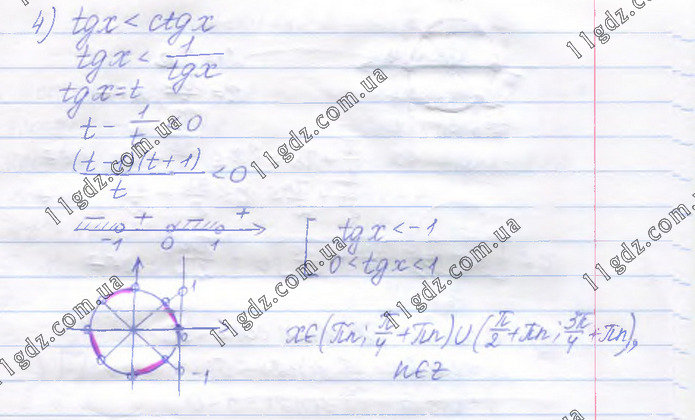 4) tgx < ctgx
tgx < 1/tgx
tgx = t
t - 1/t 0
(t- )(t+1)/t < 0
- + - +
-1 0 1
[ tgx < -1
0 < tgx < 1
1
0
-1
x∈(πn; π/4 + πn) ∪ (π/2 + πn; 3π/4 + πn),
n∈z
11gdz.com.ua
11gdz.com.ua
11gdz.com.ua
11gdz.com.ua
11gdz.com.ua
11gdz.com.ua
11gdz.com.ua
11gdz.com.ua